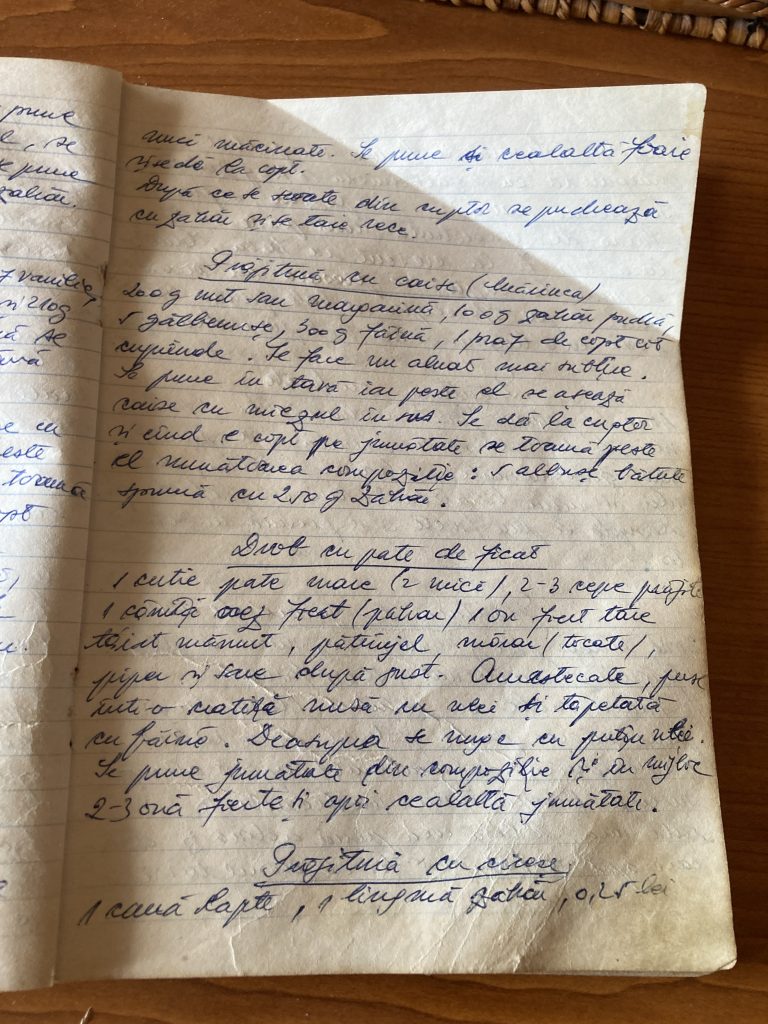 pune
se
se pune
zahăr.
vanilie,
și 210g
se
tavă
cu
peste
toarnă
nuci măcinate. Se pune și cealaltă foaie
și se dă la copt.
După ce se scoate din cuptor se pudrează
cu zahăr și se taie rece.
Prăjitură cu caise (Mărinca)
200g unt sau margarină, 100g zahăr pudră,
5 gălbenușe, 300g făină, 1 praf de copt cît
cuprinde. Se face un aluat mai subțire.
Se pune în tavă iar peste el se așează
caise cu miezul în sus. Se dă la cuptor
și cînd e copt pe jumătate se toarnă peste
el următoarea compoziție: 5 albușe bătute
spumă cu 250g zahăr.
Drob cu pate de ficat
1 cutie pate mare (2 mici), 2-3 cepe prăjite
1 fiert (pahar) 1 ou fiert tare
tăiat mărunt, pătrunjel, mărar (tocate),
piper și sare după gust. Amestecate, puse
într-o cratiță unsă cu ulei și tapetată
cu făină. Deasupra se unge cu puțin ulei.
Se pune jumătate din compoziție și în mijloc
2-3 ouă fierte și apoi cealaltă jumătate.
Prăjitură cu cireșe
1 cană lapte, 1 lingură zahăr, 0,25 lei